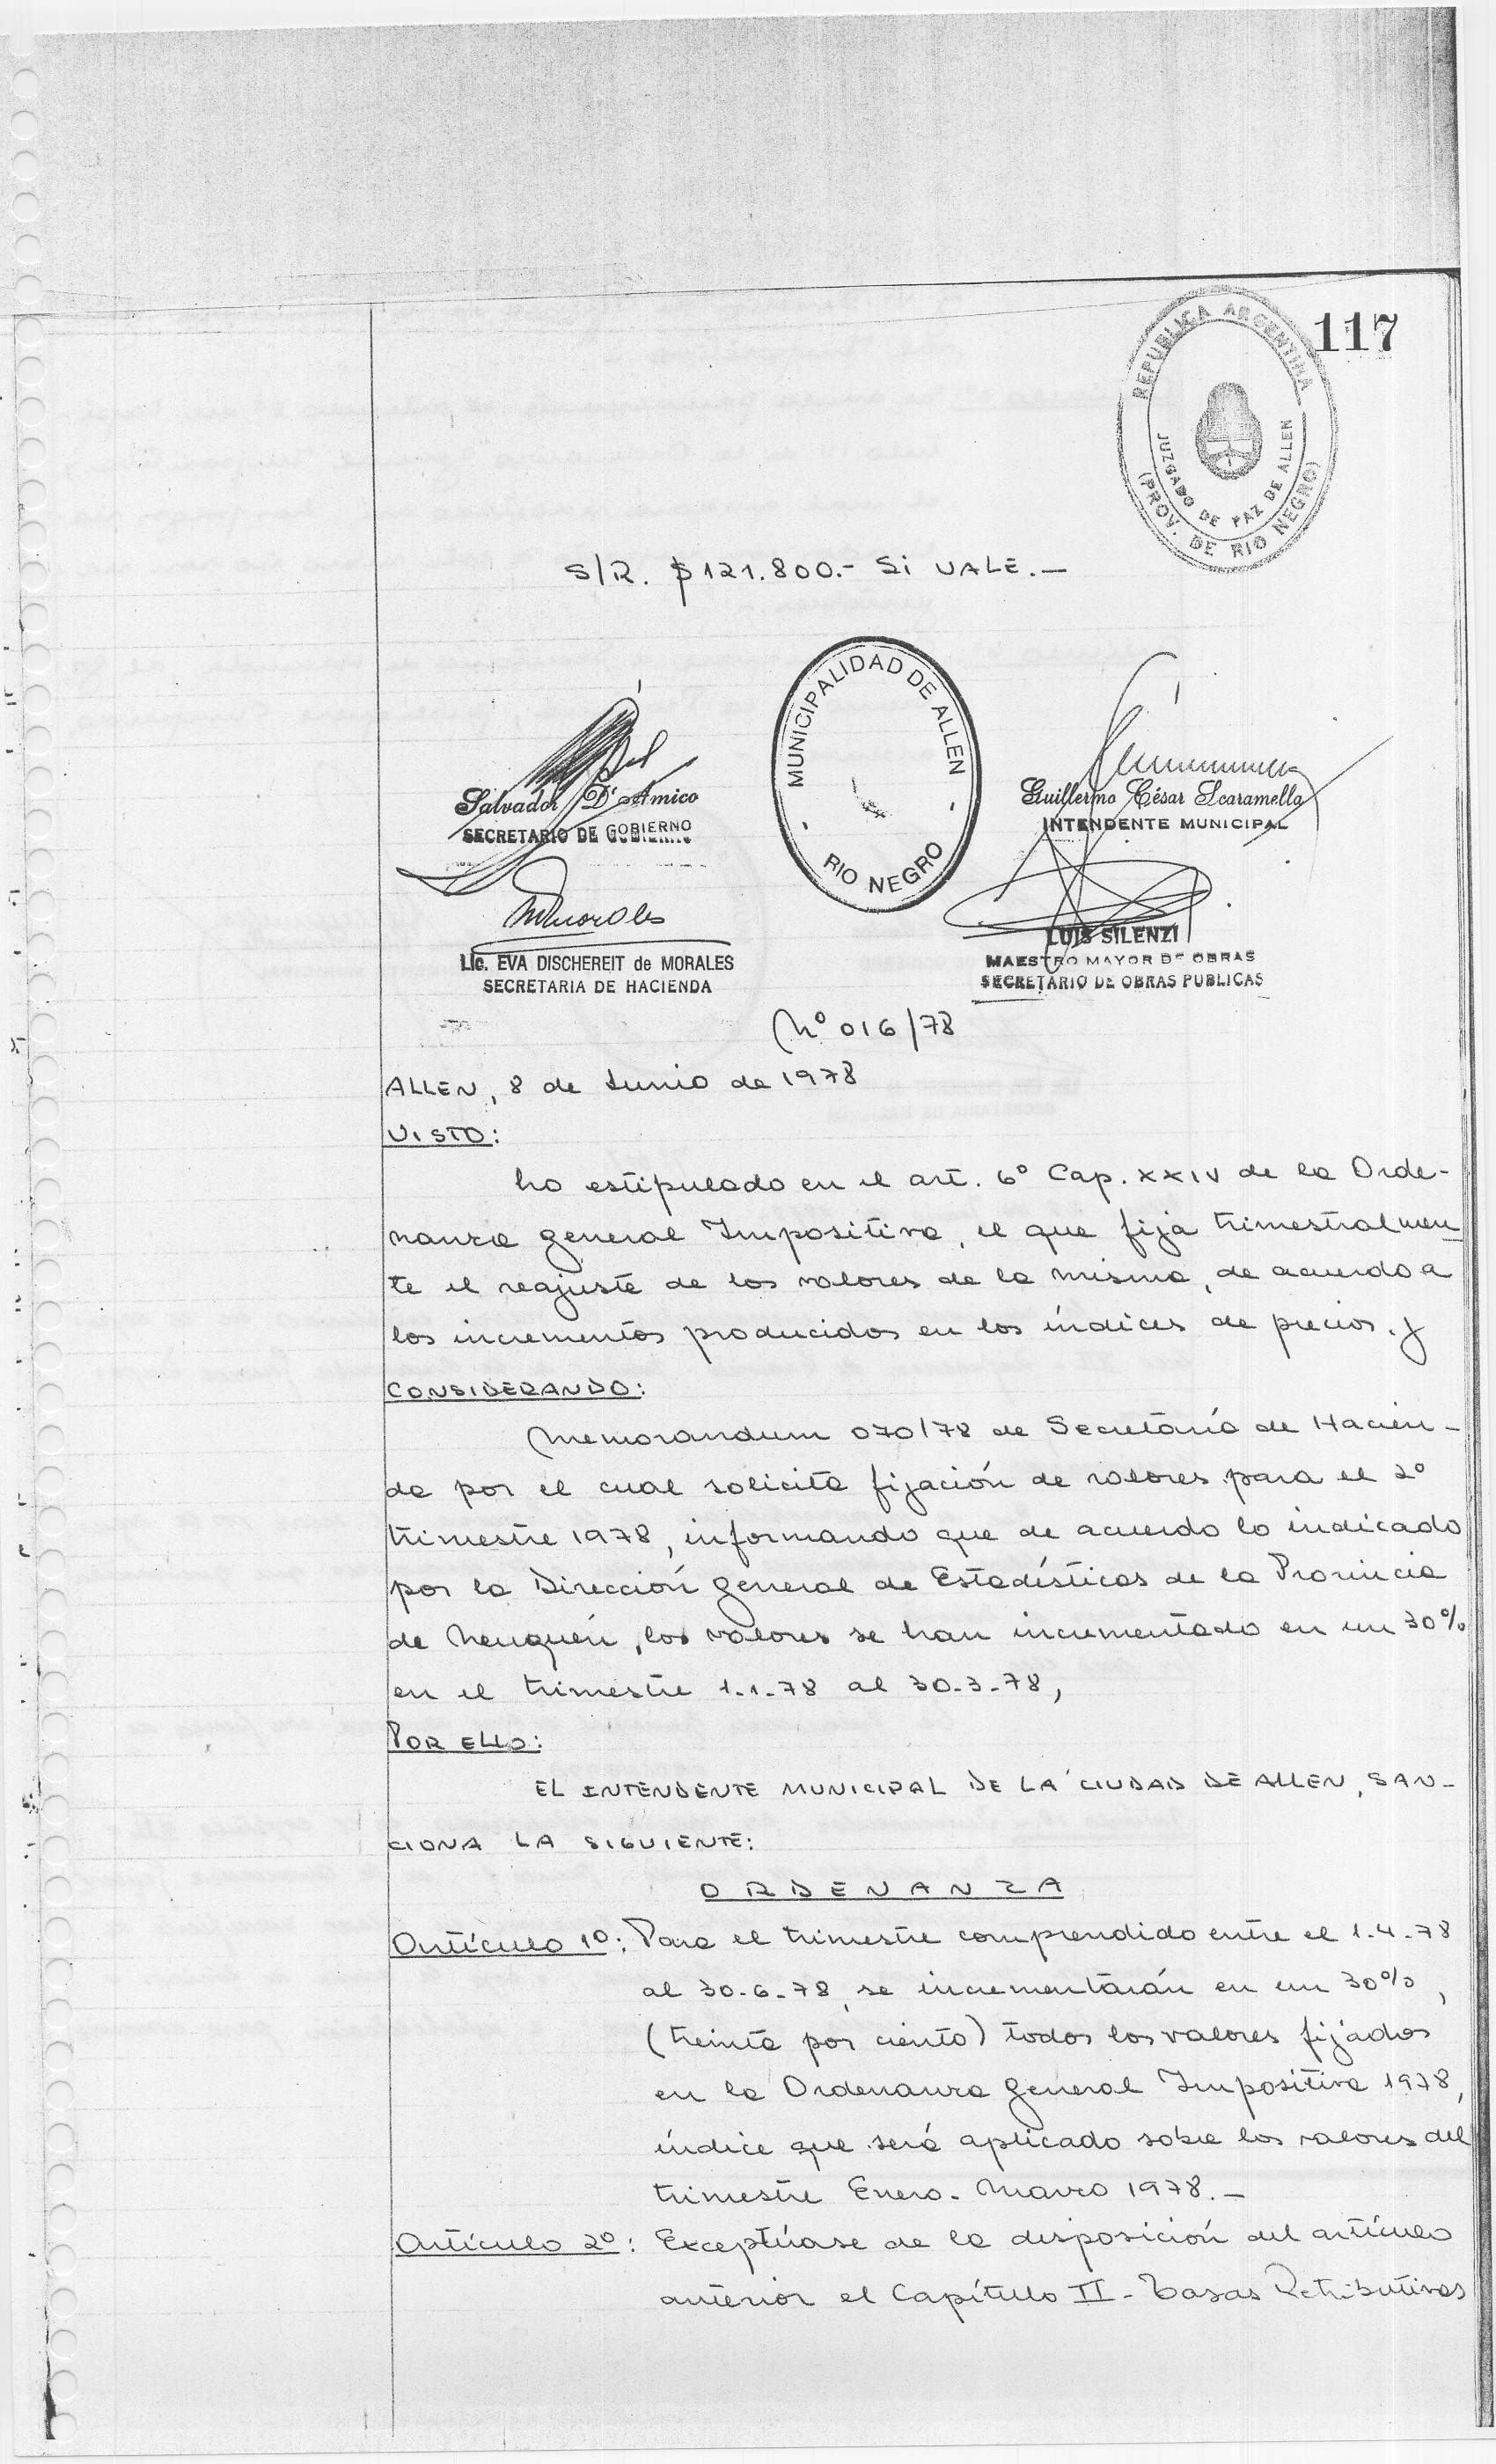 117
REPUBLICA ARGENTINA
JUZGADO DE PAZ DE ALLEN
(PROV. DE RIO NEGRO)
S/R. $121.800.- Si VALE.—
MUNICIPALIDAD DE ALLEN
- RIO NEGRO -
Salvador D'Amico
SECRETARIO DE GOBIERNO
Guillermo César Scaramella
INTENDENTE MUNICIPAL
Morales
Lic. EVA DISCHEREIT de MORALES
SECRETARIA DE HACIENDA
LUIS SILENZI
MAESTRO MAYOR DE OBRAS
SECRETARIO DE OBRAS PUBLICAS
Nº 016/78
ALLEN, 8 de Junio de 1978
VISTO:
Lo estipulado en el art. 6º Cap. XXIV de la Orde-
nanza General Impositiva, el que fija trimestralmen
te el reajuste de los valores de la misma, de acuerdo a
los incrementos producidos en los índices de precios, y
CONSIDERANDO:
Memorandum 070/78 de Secretaría de Hacien-
da por el cual solicita fijación de valores para el 2º
trimestre 1978, informando que de acuerdo lo indicado
por la Dirección General de Estadísticas de la Provincia
de Neuquén, los valores se han incrementado en un 30%
en el trimestre 1-1-78 al 30-3-78,
POR ELLO:
EL INTENDENTE MUNICIPAL DE LA CIUDAD DE ALLEN, SAN-
CIONA LA SIGUIENTE:
ORDENANZA
Artículo 1º: Para el trimestre comprendido entre el 1-4-78
al 30-6-78, se incrementarán en un 30%,
(treinta por ciento) todos los valores fijados
en la Ordenanza General Impositiva 1978,
índice que será aplicado sobre los valores del
trimestre Enero-Marzo 1978.—
Artículo 2º: Exceptúase de la disposición del artículo
anterior el Capítulo II - Tasas Retributivas